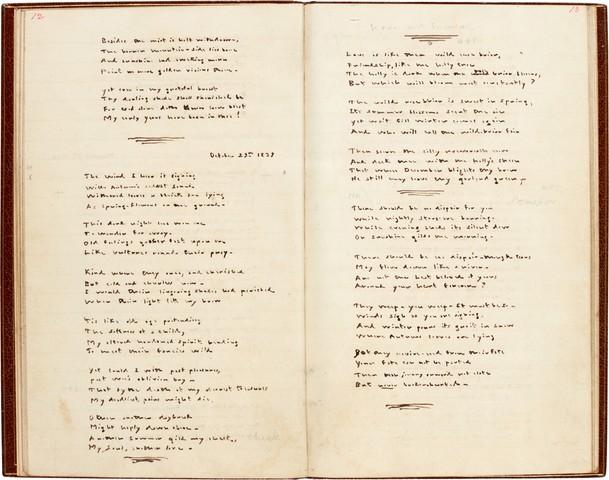 12
Besides the mist is half withdrawn,
The barren mountain-side lies bare
And sunshine and awaking morn
Paint no more golden visions there -
yet ever in my grateful breast
Thy darling shade shall cherished be
For God alone doth know how blest
My early years have been in thee!
October 29th 1839
The wind I hear it sighing
With Autumn's saddest sound
Withered leaves as thick are lying
As Spring-flowers on the ground -
This dark night has won me
To wander far away -
Old feelings gather fast upon me
Like vultures round their prey -
Kind were they once, and cherished
But cold and cheerless now -
I would their lingering shades had perished
When their light left my brow
Tis like old age pretending
The softness of a child,
My altered hardened spirit bending
To meet their fancies wild
Yet could I with past pleasures,
past woe's oblivion buy -
That by the death of my dearest treasures
My deadliest pains might die.
O then another daybreak
Might haply dawn above -
Another summer gild my cheek,
My soul, another love -
13
Love is like the wild rose briar,
Friendship, like the holly tree
The holly is dark when the rose briar blooms,
But which will bloom most constantly?
The wild rose briar is sweet in spring,
Its summer blossoms scent the air
yet wait till winter comes again
And who will call the wild-briar fair
Then scorn the silly rose-wreath now
And deck thee with the holly's sheen
That when December blights thy brow
He still may leave thy garland green -
There should be no despair for you
While nightly stars are burning -
While evening sheds its silent dew
Or sunshine gilds the morning -
There should be no despair - though tears
May flow down like a river -
Are not the best beloved of years
Around your heart forever?
They weep - you weep - It must be so -
Winds sigh as you are sighing,
And winter pours its grief in snow
Where Autumn's leaves are lying
revive - and from their fate
Your fate can not be parted
Then journey onward not elate
But never brokenhearted -